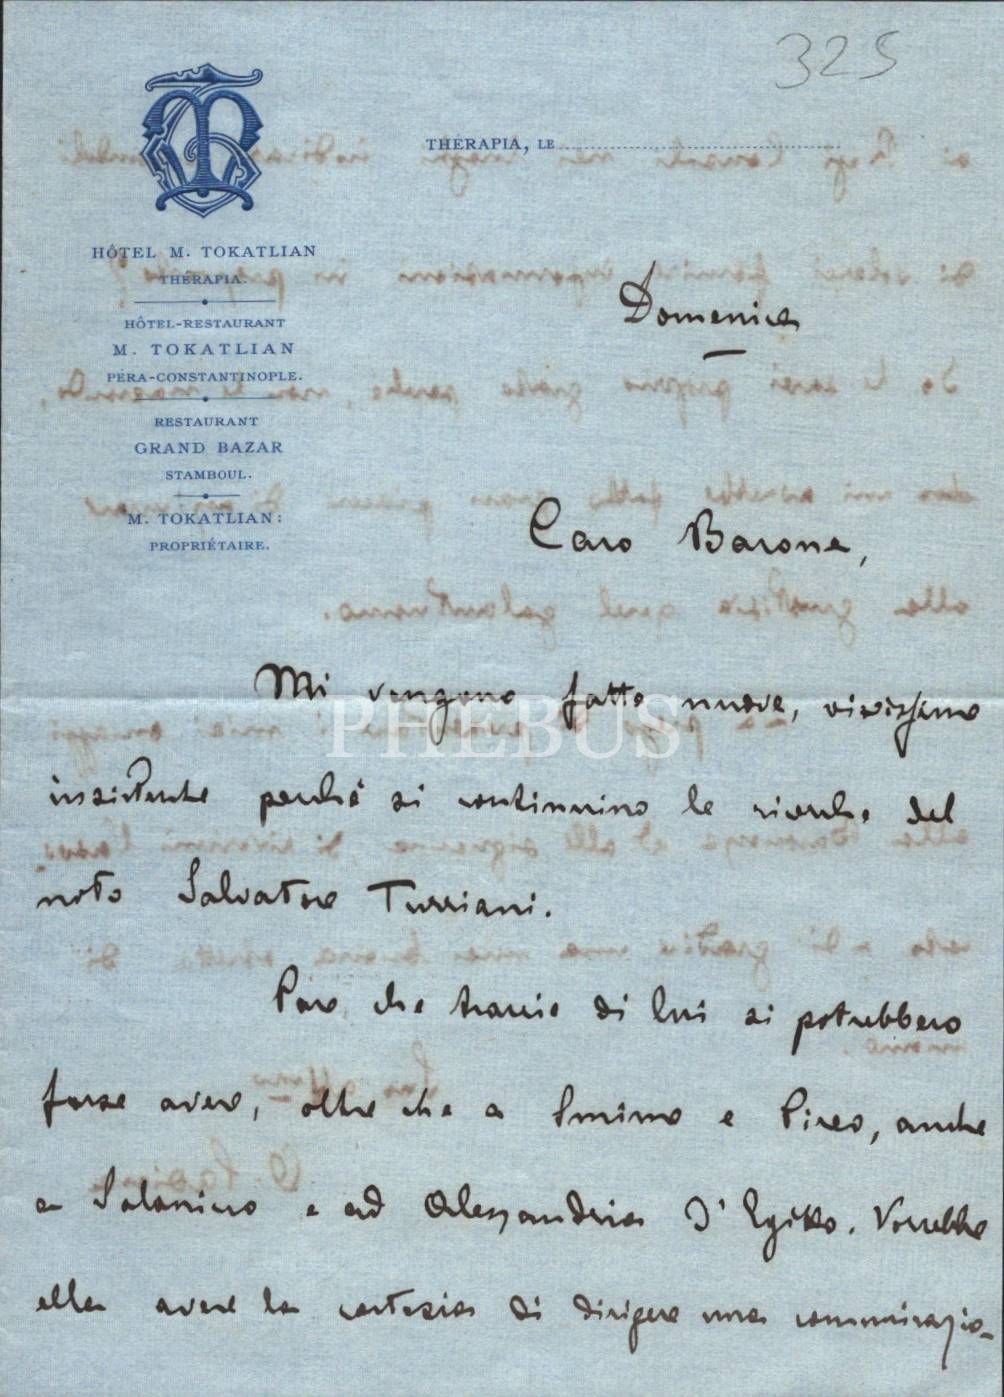 325
THÉRAPIA, LE
HÔTEL M. TOKATLIAN
THÉRAPIA.
HÔTEL-RESTAURANT
M. TOKATLIAN
PÉRA-CONSTANTINOPLE.
RESTAURANT
GRAND BAZAR
STAMBOUL.
M. TOKATLIAN:
PROPRIÉTAIRE.
Domenica
Caro Barone,
Mi vengono fatte nuove, vivissime
PHEBUS
insistenze perchè si continuino le ricerche del
noto Salvatore Turriani.
Pare che traccie di lui si potrebbero
forse avere, oltre che a Smirne e Pireo, anche
a Salonicco e ad Alessandria d'Egitto. Vorrebbe
ella avere la cortesia di dirigere una comunicazio-